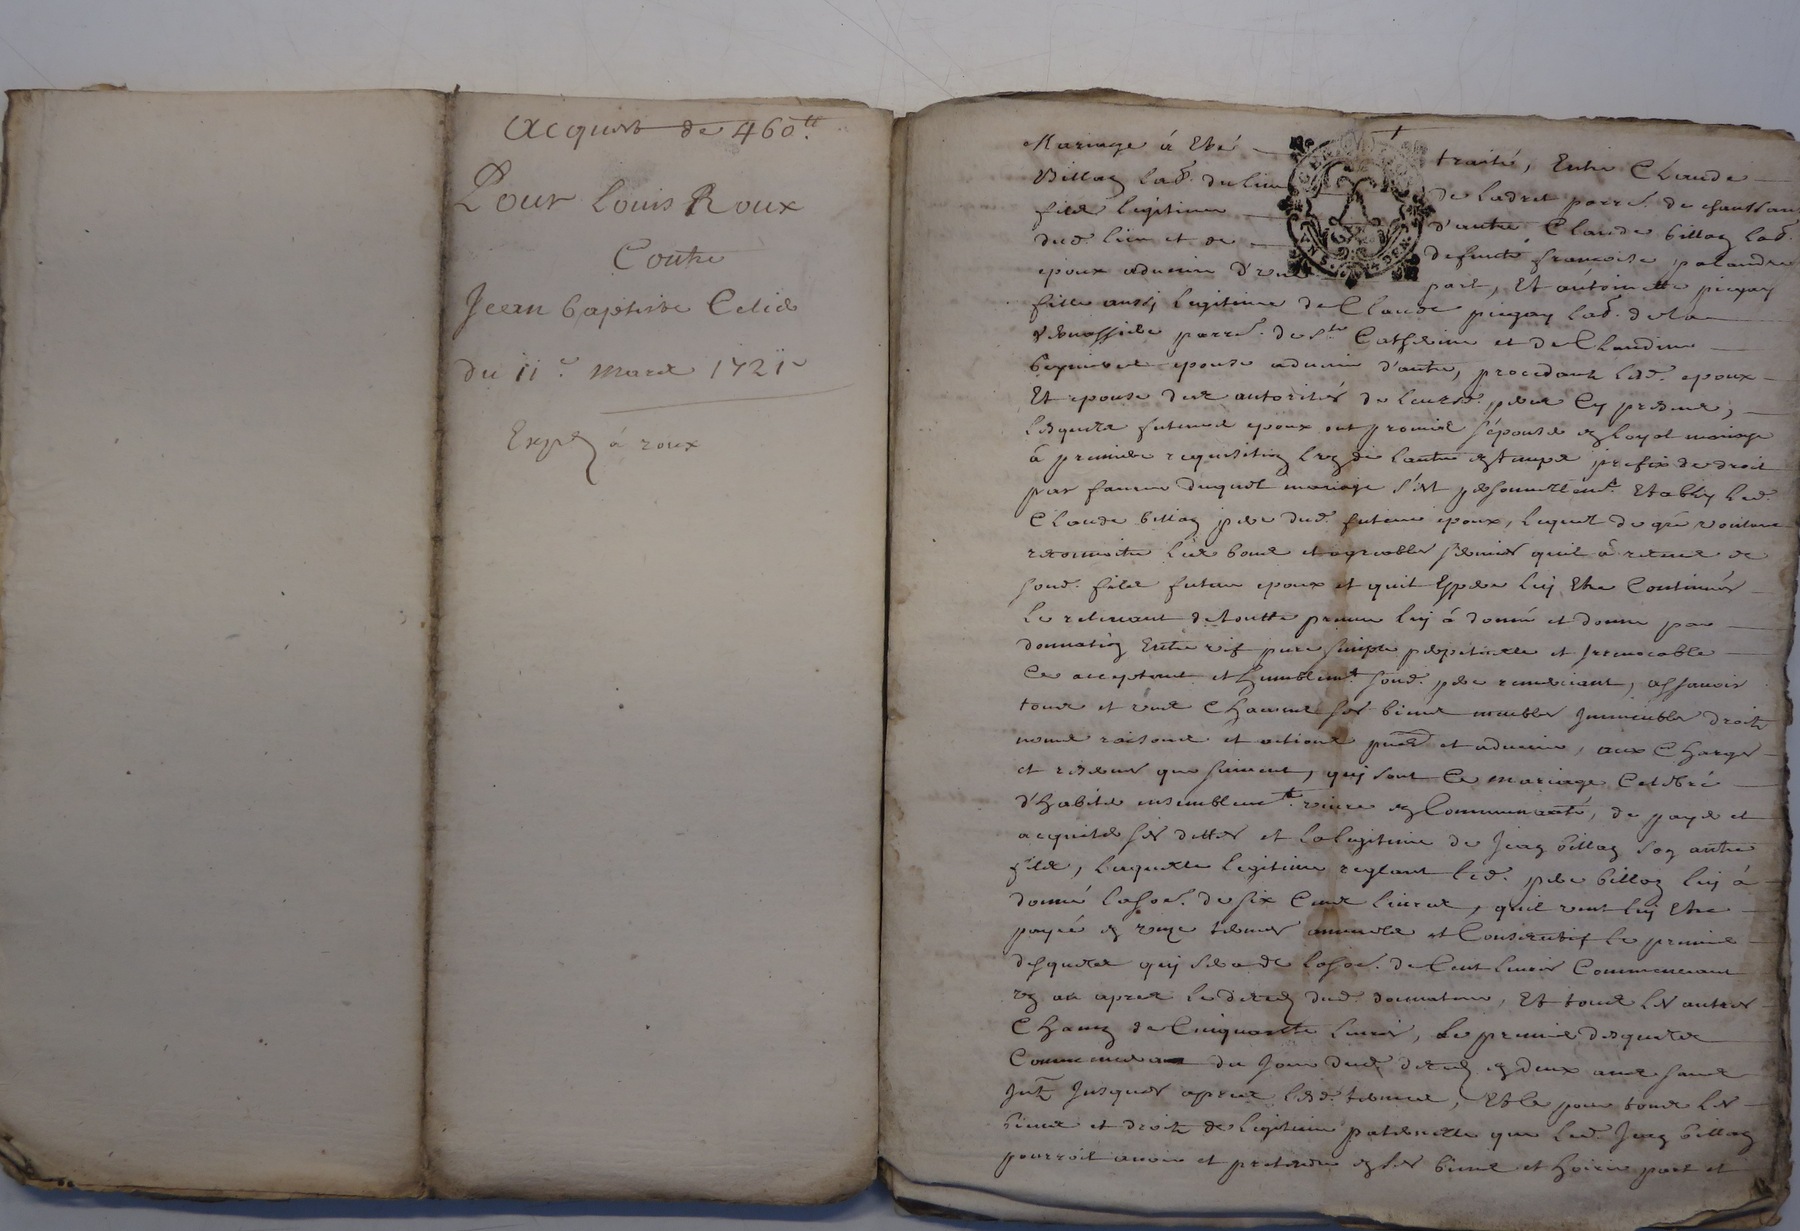 Acquest de 460.ᵗᵗ
Pour Louis Roux
Contre
Jean baptiste
du 11.ᵉ mars 1721
Exp. à roux
Mariage á Eté traité, Entre Claude
billoz lad. du lieu de Ladret parr. de chaussan
fils legitime d'autre Claude billoz lad.
dud. lieu et de deffunte françoise palandre
epoux advenir d'une part, Et antoinette pugay
fille aussy legitime de Claude pugay lad. de la
parr. de S.te Catherine et de Claudine
epouse advenir d'autre, procedant led. epoux
Et epouse des autorités de leursd. peres Cy presens,
lesquels futurs epoux ont promis s'épouser en loyal mariage
á premiere requisition l'un de l'autre en temps prefix de droit
par faveur duquel mariage s'est personnellem.t Etably led.
Claude billoz pere dud. futur epoux, lequel de gré voulant
reconnoitre les bons et agreables services quil á receus de
sond. fils futur epoux et quil Espere luy Etre Continués
le relevant de toutte preuve luy á donné et donne par
donnation Entre vifs pure simple perpetuelle et Irrevocable
Ce acceptant et humblem.t sond. pere remerciant, assavoir
tous et uns Chacuns ses biens meubles Immeubles droits
noms raisons et actions pns et advenir, aux Charges
et reserves que suivent, qui sont Ce mariage Celebré
d'habiter ensemblem.t vivre en Communauté, de payer et
acquiter ses dettes et la legitime de Jean billoz son autre
fils, laquelle legitime reglant led. pere billoz luy á
donné la som. de six Cens livres, quil veut luy Etre
payée en onze termes annuels et Consecutifs le premier
desquels qui sera de la som. de Cent livres Commencera
un an apres le deces dud. donnateur, Et tous les autres
Chacun de Cinquante livres, Le premier desquels
Commencera du Jour dud. deces en deux ans sans
Int. Jusques apres lesd. termes, Et le pour tous les
biens et droits de legitime paternelle que led. Jean billoz
pourroit avoir et pretendre en ses biens et hoirie part et